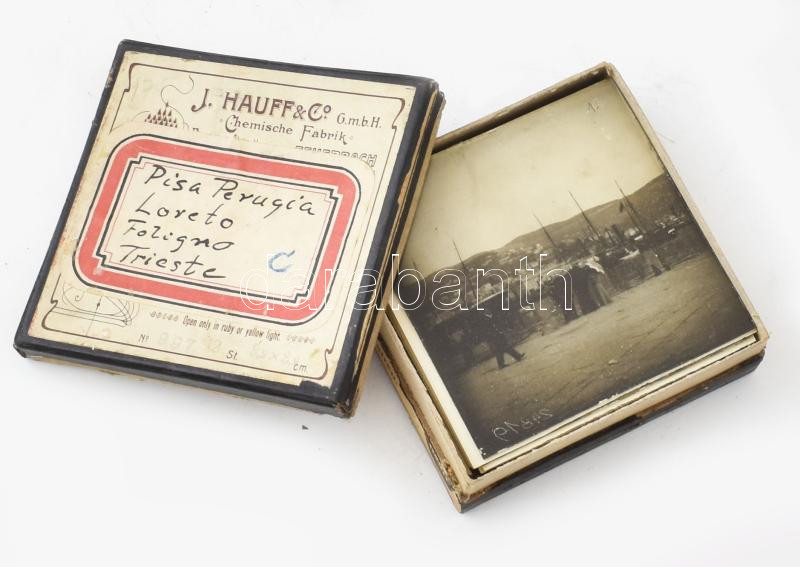 J. HAUFF & Co G.m.b.H.
Chemische Fabrik
FEUERBACH
Pisa Perugia
Loreto
Foligno
Trieste
C
Open only in ruby or yellow light.
No St. cm.
darabanth